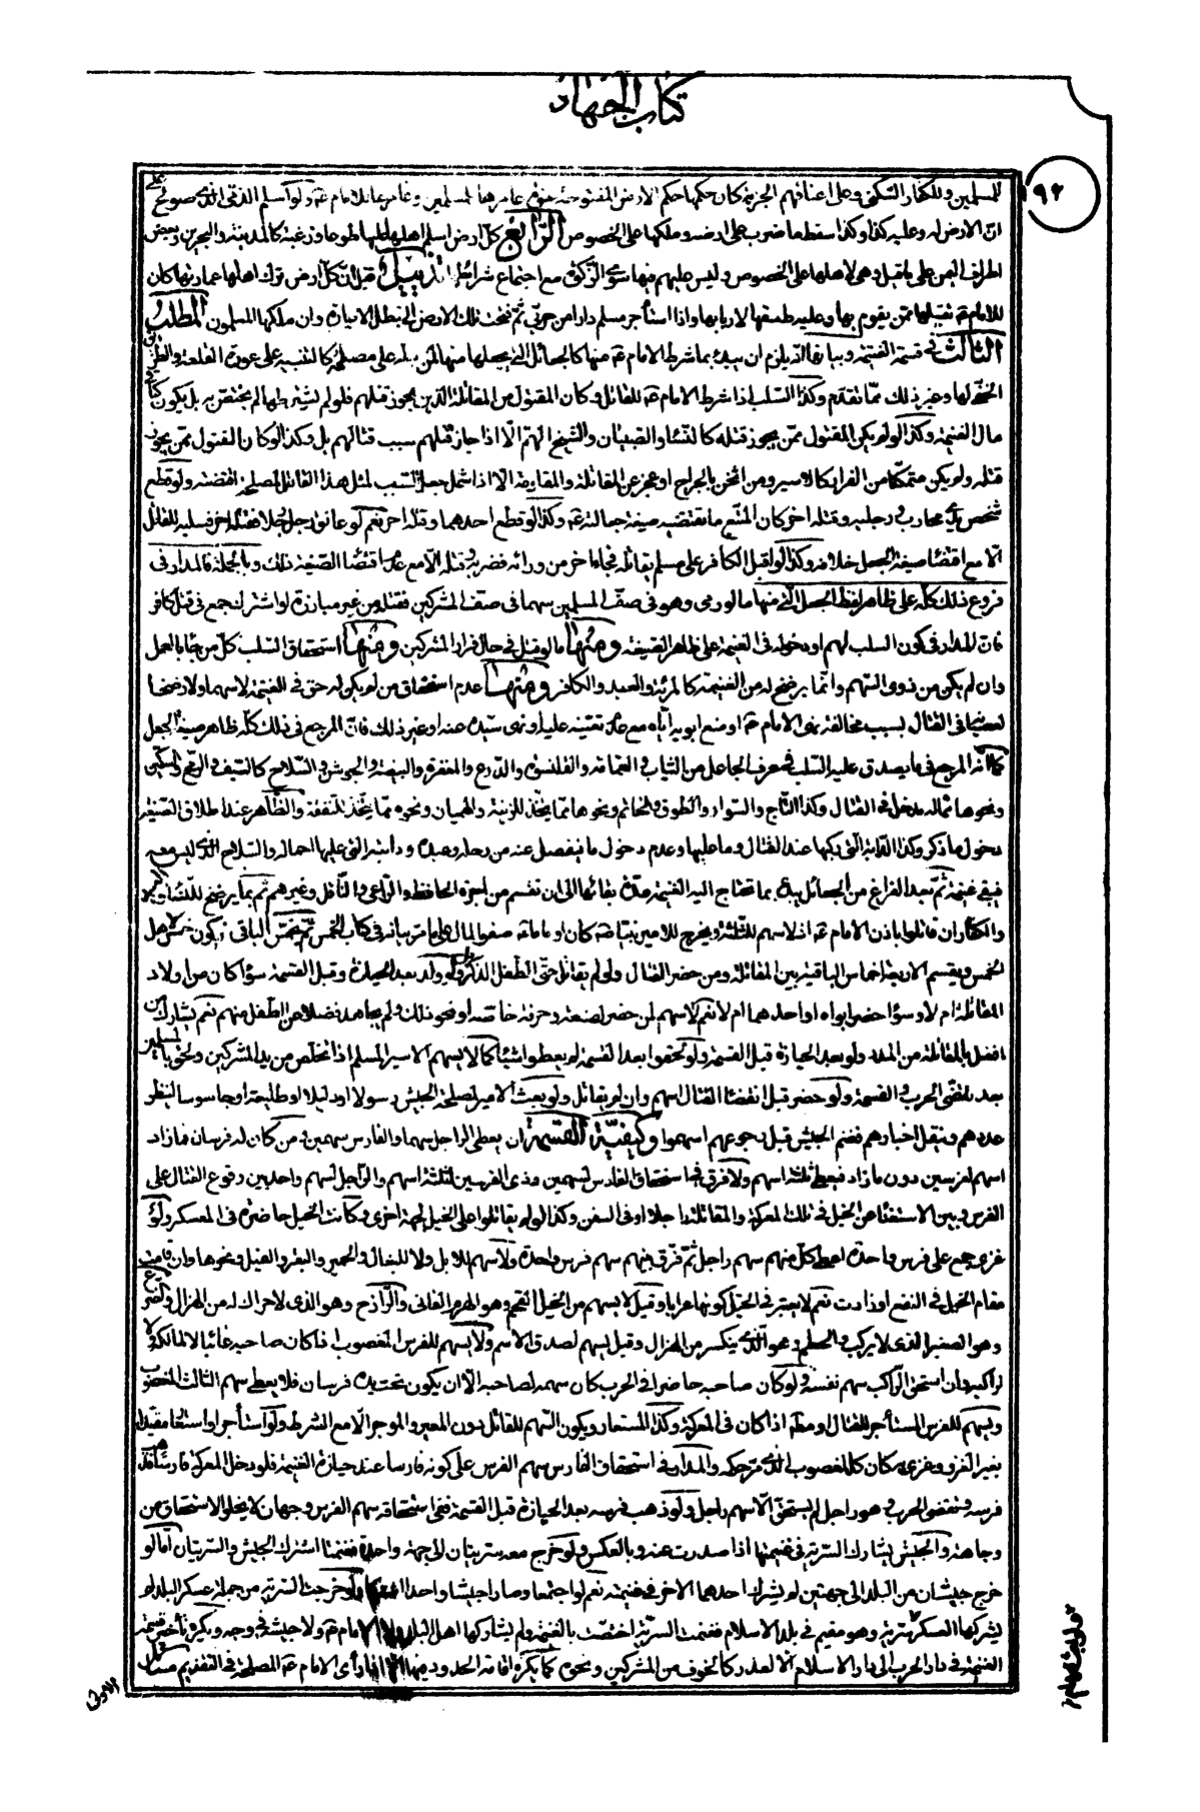 كتاب الجهاد
٩٢
للمسلمين وللكفار السكنى وعلى اعناقهم الجزية كان حكمها حكم الارض المفتوحة عنوة عامرها للمسلمين و للامام ع ولو اسلم الذمى الذى صولح على
ان الارض له وعليه كذا وكذا سقط ما ضرب على ارضه وملكها على الخصوص الرابع كل ارض اسلم اهلها عليها طوعا ورغبة كالمدينة والبحرين وبعض
اطراف اليمن على ما قيل وهى لاهلها على الخصوص وليس عليهم فيها سوى الزكوة مع اجتماع شرائطها تذييل قيل ان كل ارض ترك اهلها عمارتها كان
للامام ع تقبيلها ممن يقوم بها وعليه طسقها لاربابها واذا استأجر مسلم دارا من حربى ثم فتحت تلك الارض لم تبطل الاجارة وان ملكها المسلمون المطلب
الثالث فى قسمة الغنيمة يلزم ان يبدء بما شرط الامام ع منها كالجعائل التى يجعلها منها لمن يدله على مصلحة كالتنبيه على عورة القلعة والطريق
الخفى لها وغير ذلك مما تقدم وكذا السلب اذا شرط الامام ع للقاتل وكان المقتول من المقاتلة الذين يجوز قتلهم فلو لم يشترطها لم يختص به بل يكون كباقى
مال الغنيمة وكذا لو لم يكن المقتول ممن يجوز قتله كالنساء والصبيان والشيخ الهم الا اذا جاز قتلهم بسبب قتالهم بل وكذا لو كان المقتول ممن يجوز
قتله ولم يكن متمكنا من الفرار كالاسير ومن اثخن بالجراح او عجز عن المقاتلة والمقاومة الا اذا شمل جعل السلب لمثل هذا القاتل لمصلحة اقتضته ولو قطع
شخص يدى محارب ورجليه وقتله اخر كان المتبع ما تقتضيه صيغة جعالته ع وكذا لو قطع احدهما وقتله اخر نعم لو عانق رجل رجلا فقتله اخر فسلبه للقاتل
الا مع اقتضاء صيغة الجعل خلافه وكذا لو اقبل الكافر على مسلم يقاتله فجاءه اخر من ورائه فضربه وقتله الا مع عدم اقتضاء الصيغة ذلك وبالجملة فالمدار فى
فروع ذلك كله على ظاهر لفظ الجعل التى منها ما لو رمى وهو فى صف المسلمين سهما فى صف المشركين فقتله من غير مبارزة او اشترك جمع فى قتل كافر
فان المدار فى كون السلب لهم او دخوله فى الغنيمة على ظاهر الصيغة ومنها ما لو قتل فى حال فرار المشركين ومنها استحقاق السلب كل من جاء بالعمل
وان لم يكن من ذوى السهم وانما يرضخ له من الغنيمة كالمرئة والعبد والكافر ومنها عدم استحقاق من لم يكن له حق فى الغنيمة لا سهما ولا رضخا
لعصيانه فى القتال بسبب مخالفة نهى الامام ع او منع ابويه اياه مع عدم تعينه عليه او نهى سيده عنه او غير ذلك فان المرجع فى ذلك كله ظاهر صيغة الجعل
كما انه المرجع فى ما يصدق عليه السلب فى عرف الجاعل من الثياب والعمامة والقلنسوة والدرع والمغفرة والبيضة والجوشن والسلاح كالسيف والرمح والسكين
ونحوها مما له مدخل فى القتال وكذا التاج والسوار والطوق والخاتم ونحوها مما يتخذ للزينة والهميان ونحوه مما يتخذ للنفقة والظاهر عند اطلاق الصيغة
دخول ما ذكر وكذا الدابة التى يركبها عند القتال وما عليها وعدم دخول ما ينفصل عنه من رحله وعبده ودابته التى عليها احماله والسلاح الذى ليس معه
فيبقى غنيمة ثم بعد الفراغ من الجعائل يبدء بما تحتاج اليه الغنيمة مدة بقائها الى ان تقسم من اجرة الحافظ والراعى والناقل وغيرهم ثم بما يرضخ للنساء والعبيد
والكفار ان قاتلوا باذن الامام ع اذ لا سهم للثلثة ويخرج للامير نبيا صه كان او اماما ع صفو المال على ما مر بيانه فى كتاب الخمس ثم يخمس الباقى فيكون خمس لاهل
الخمس ويقسم الاربعة اخماس الباقية بين المقاتلة ومن حضر القتال ولو لم يقاتل حتى الطفل الذكر ولو ولد بعد الحيازة وقبل القسمة سواء كان من اولاد
المقاتلة ام لا وسواء حضر ابواه او احدهما ام لا نعم لا سهم لمن حضر لصنعة وحرفة خاصة او نحو ذلك ولم يجاهد فضلا عن الطفل منهم نعم يشارك من
اتصل بالمقاتلة من المدد ولو بعد الحيازة قبل القسمة ولو لحقوا بعد القسمة لم يعطوا شيئا كما لا يسهم الاسير المسلم اذا تخلص من يد المشركين ولحق بالمسلمين
بعد تقضى الحرب والقسمة ولو حضر قبل انقضاء القتال اسهم وان لم يقاتل ولو بعث الامير لمصلحة الجيش رسولا او دليلا او طليعة او جاسوسا لينظر
عددهم وينقل اخبارهم فغنم الجيش قبل رجوعهم اسهموا وكيفية القسمة ان يعطى الراجل سهما والفارس سهمين ومن كان له فرسان فما زاد
اسهم لفرسين دون ما زاد فيعطى ثلثة اسهم ولا فرق فى استحقاق الفارس لسهمين وذى الفرسين لثلثة اسهم والراجل لسهم واحد بين وقوع القتال على
الفرس وبين الاستغناء عن الخيل فى تلك المعركة والمقاتلة راجلا او فى السفن وكذا لو لم يقاتلوا على الخيل لجهة اخرى وكانت الخيل حاضرة فى المعسكر ولو
غزى جمع على فرس واحدة اعطى كل منهم سهم راجل ثم فرق بينهم سهم فرس واحدة ولا سهم للابل ولا للبغال والحمير والبقر والفيل ونحوها وان قامت
مقام الخيل فى النفع او زادت نعم لا يعتبر فى الخيل كونها عرابا وقيل لا يسهم من الخيل القحم وهو الهرم الفانى والرازح وهو الذى لا حراك له من الهزال والضرع
وهو الصغير الذى لا يركب والحطم وهو الذى ينكسر من الهزال وقيل يسهم لصدق الاسم ولا يسهم للفرس المغصوب اذا كان صاحبه غائبا لا لمالكه ولا
لراكبه وان استحق الراكب سهم نفسه ولو كان صاحبه حاضرا فى الحرب كان سهمه لصاحبه الا ان يكون تحت يده فرسان فلا يعطى سهم الثالث المغصوب
ويسهم للفرس المستأجر للقتال او مطلقا اذا كان فى المعركة وكذا المستعار ويكون السهم للمقاتل دون المعير والموجر الا مع الشرط ولو استأجر او استعار مقيدا
بغير الغزو وغزى به كان كالمغصوب الذى مر حكمه والمدار فى استحقاق الفارس سهم الفرس على كونه فارسا عند حيازة الغنيمة فلو دخل المعركة فارسا فنفق
فرسه وتقضى الحرب وهو راجل لم يستحق الا سهم راجل ولو ذهب فرسه بعد الحيازة قبل القسمة ففى استحقاقه سهم الفرس وجهان لا يخلو الاستحقاق من
وجاهة والجيش يشارك السرية فى غنيمتها اذا صدرت عنه وبالعكس ولو خرج معه سريتان الى جهة واحدة فغنمتا اشترك الجيش والسريتان اما لو
خرج جيشان من البلد الى جهتين لم يشرك احدهما الاخر فى غنيمته نعم لو اجتمعا وصارا جيشا واحدا ولو خرجت السرية من جملة عسكر البلد لم
يشركها العسكر وهو مقيم فى بلد الاسلام فغنمت السرية اختصت بالغنيمة ولم يشاركها اهل البلد ولا الامام ع ولا جيشه فى وجه ويكره تأخير قسمة
الغنيمة فى دار الحرب الى دار الاسلام الا لعذر كالخوف من المشركين ونحوه كما يكره اقامة الحدود فيها الا اذا رأى الامام ع المصلحة فى التقديم مسائل
الاولى